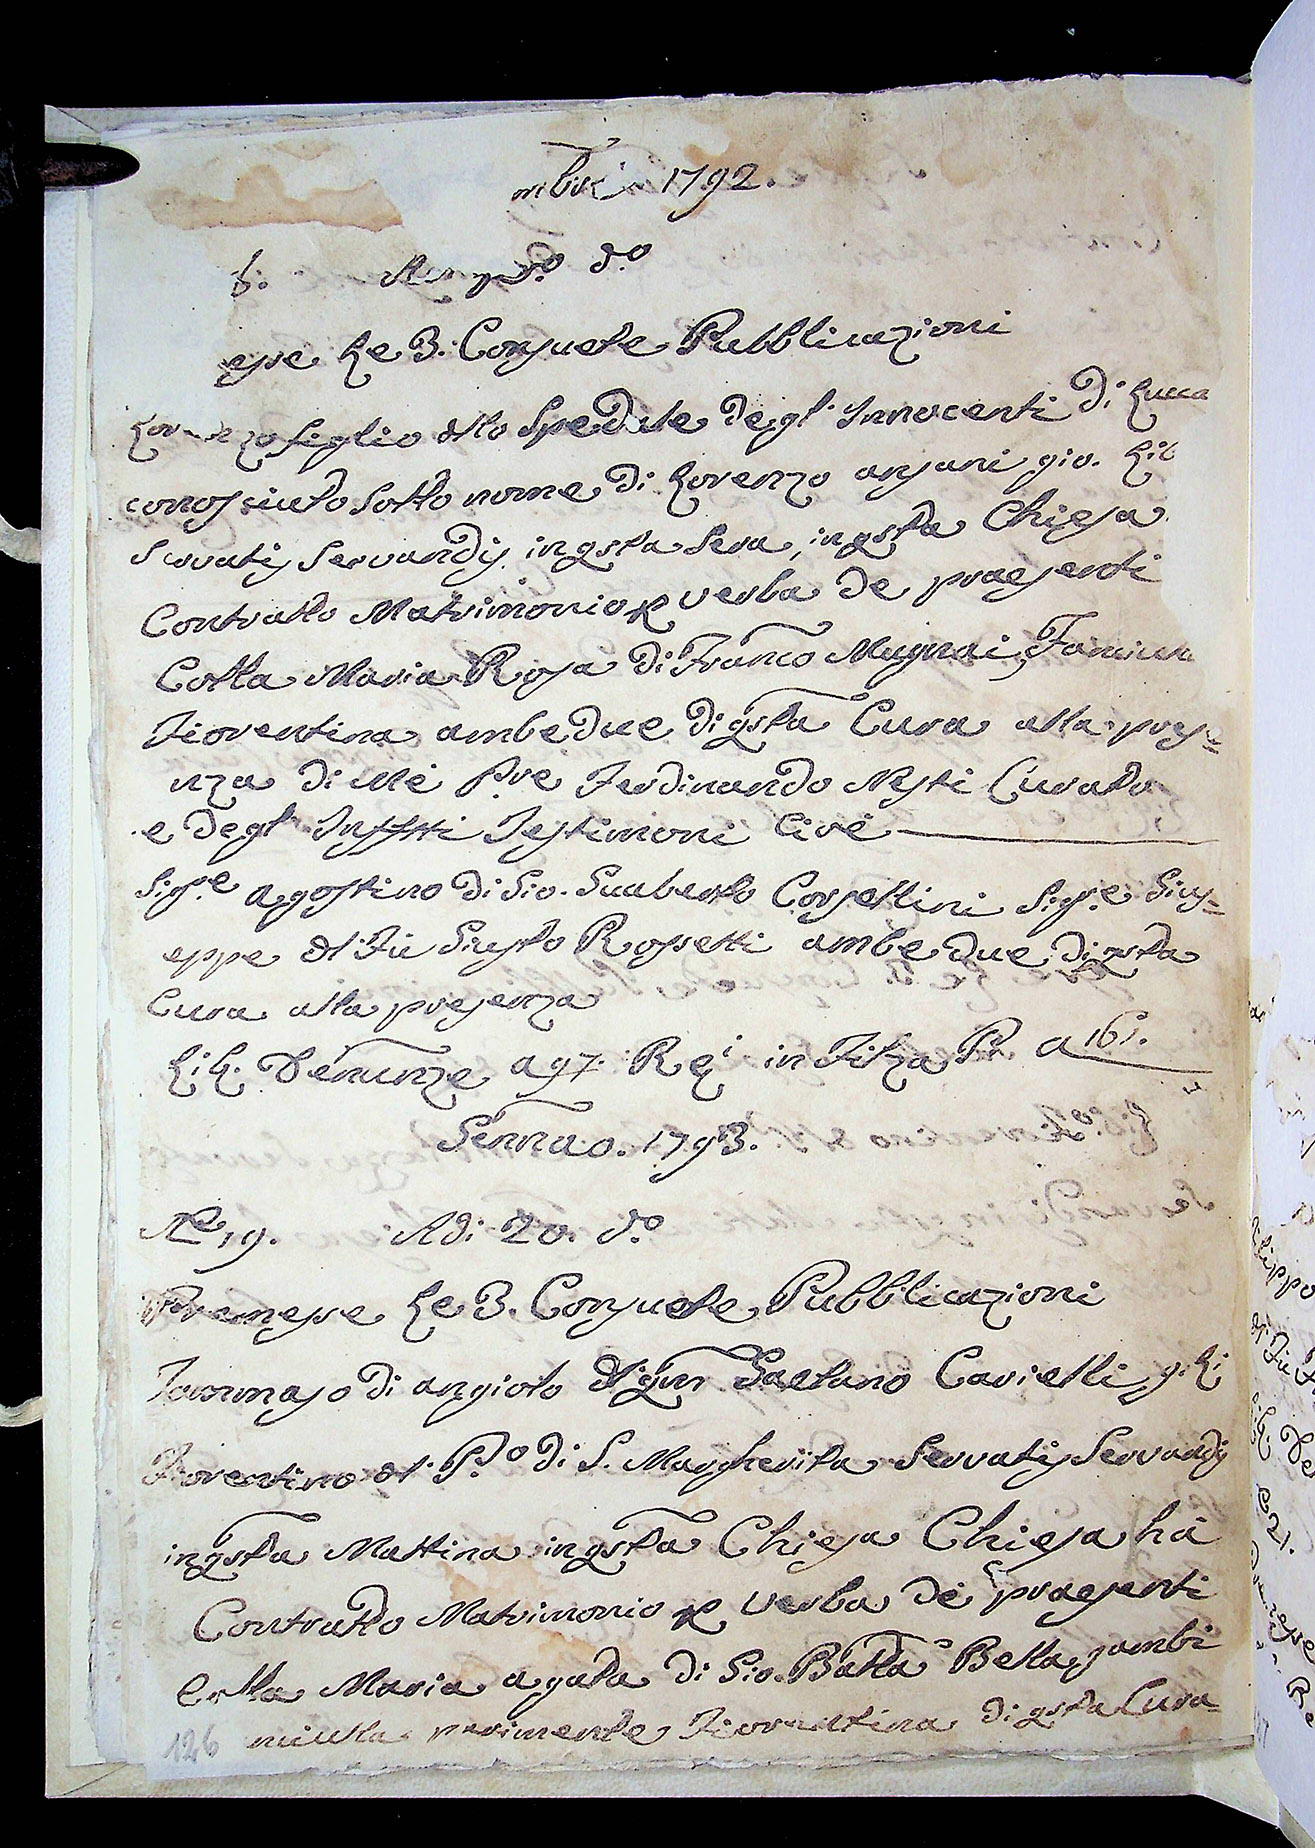 mbre 1792.
d.o
esse Le 3. Consuete Pubblicazioni
Lorenzo figlio dllo Spedale degl' Innocenti di Lucca
conosciuto sotto nome di Lorenzo ansani gio. Lib
Servatis Servandis in qsta Sera, in qsta Chiesa
Contratto Matrimonio p verba de praesenti
Colla Maria Rosa di Franco Mugnai Fanciu
Fiorentina ambedue di qsta Cura alla prese=
nza di Me P.re Ferdinando Nesti Curato
e degl' Infftti Testimoni Cive
Sig.re Agostino di Gio. Gualberto Corsellini Sig.re Gius=
eppe dl Fu Giusto Rossetti ambe due di qsta
Cura alla presenza
Lib. Denunze a 97. Reg.i in Filza P. a 161.
Gennao. 1793.
No. 19. Adi 20. d.o
Premesse Le 3. Consuete Pubblicazioni
Tommaso di angiolo dl qm Gaetano Cavielli g. Li
Fiorentino dl P.o di S. Margherita Servatis Servandis
in qsta Mattina in qsta Chiesa Chiesa hà
Contratto Matrimonio p verba de praesenti
Colla Maria agata di Gio. Batta Bellagambi
nciulla parimente Fiorentina di qsta Cura
126